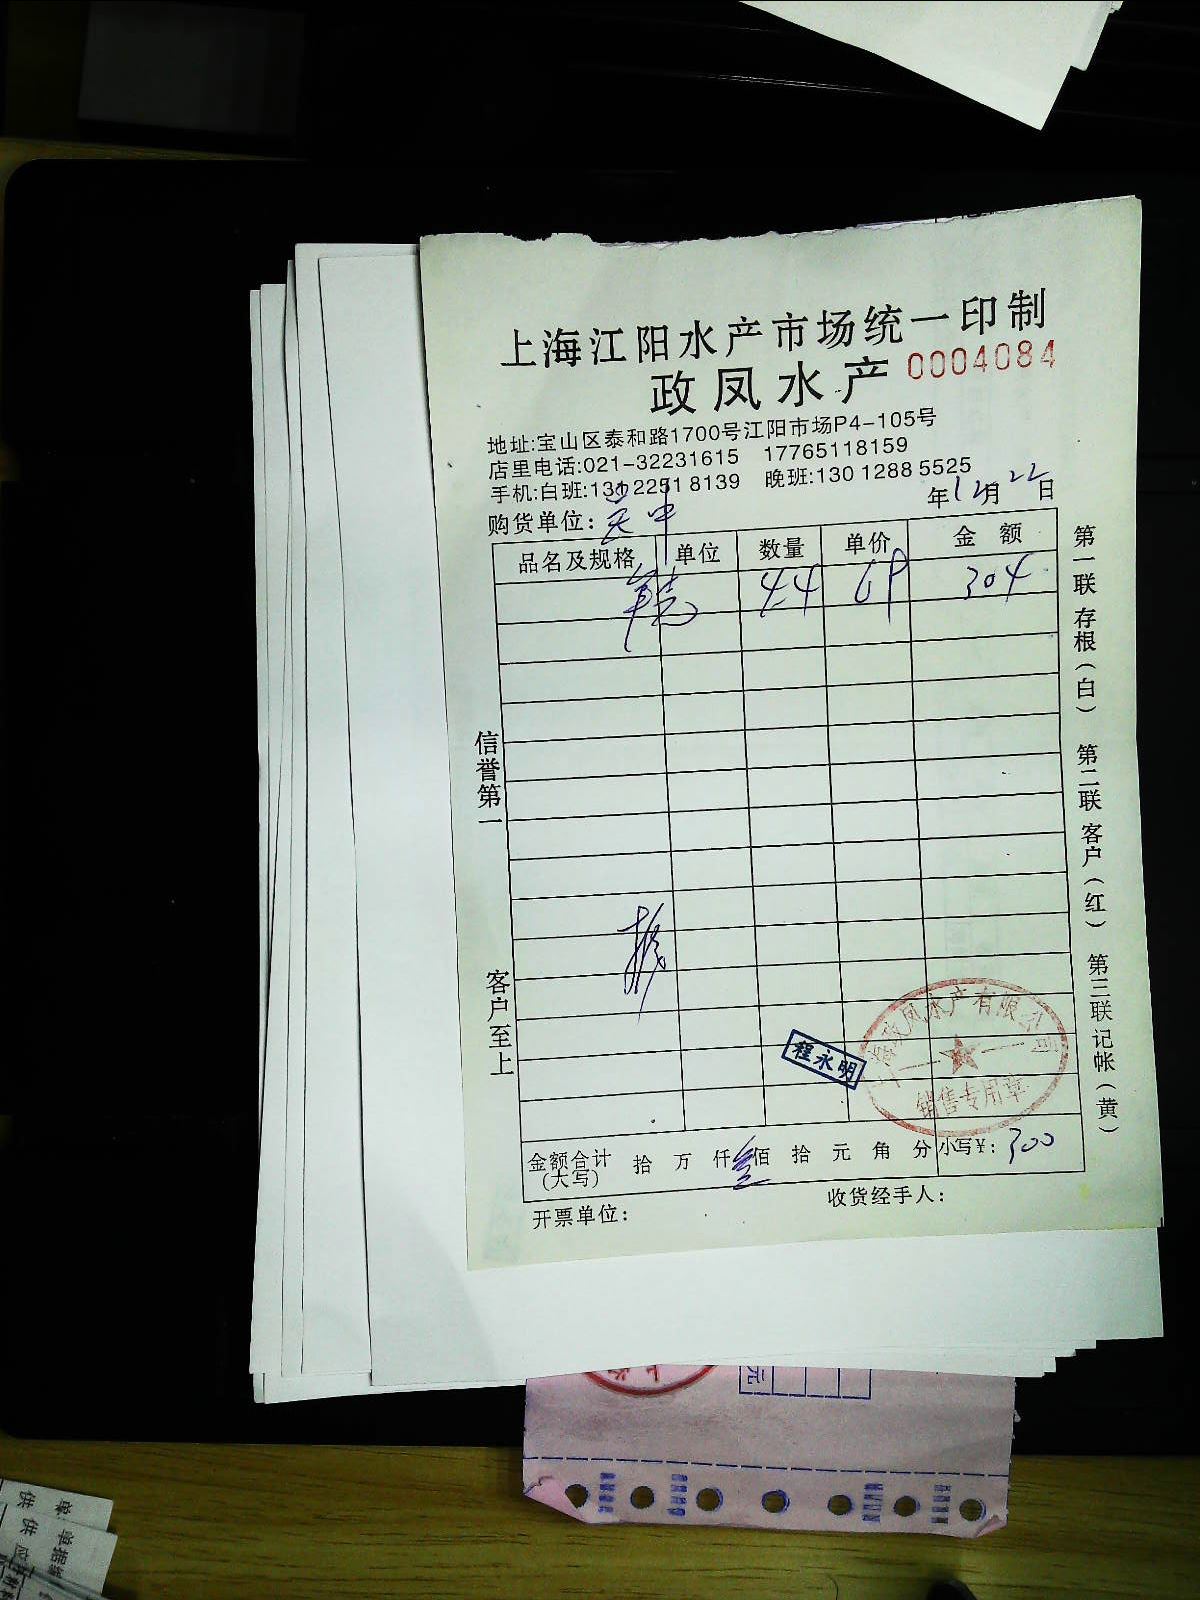 上海江阳水产市场统一印制
政凤水产 0004084
地址:宝山区泰和路1700号江阳市场P4-105号
店里电话:021-32231615 17765118159
手机:白班:131 2251 8139 晚班:130 1288 5525
年12月22日
购货单位:
品名及规格 单位 数量 单价 金额
44 304
信誉第一
客户至上
第一联 存根(白) 第二联 客户(红) 第三联 记帐(黄)
程永明
上海政凤水产有限公司
销售专用章
金额合计(大写) 拾 万 仟 叁佰 拾 元 角 分 小写¥: 300
开票单位: 收货经手人: